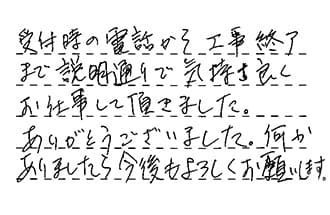 受付時の電話から工事終了
まで説明通りで気持ち良く
お仕事して頂きました。
ありがとうございました。何か
ありましたら今後もよろしくお願いします。